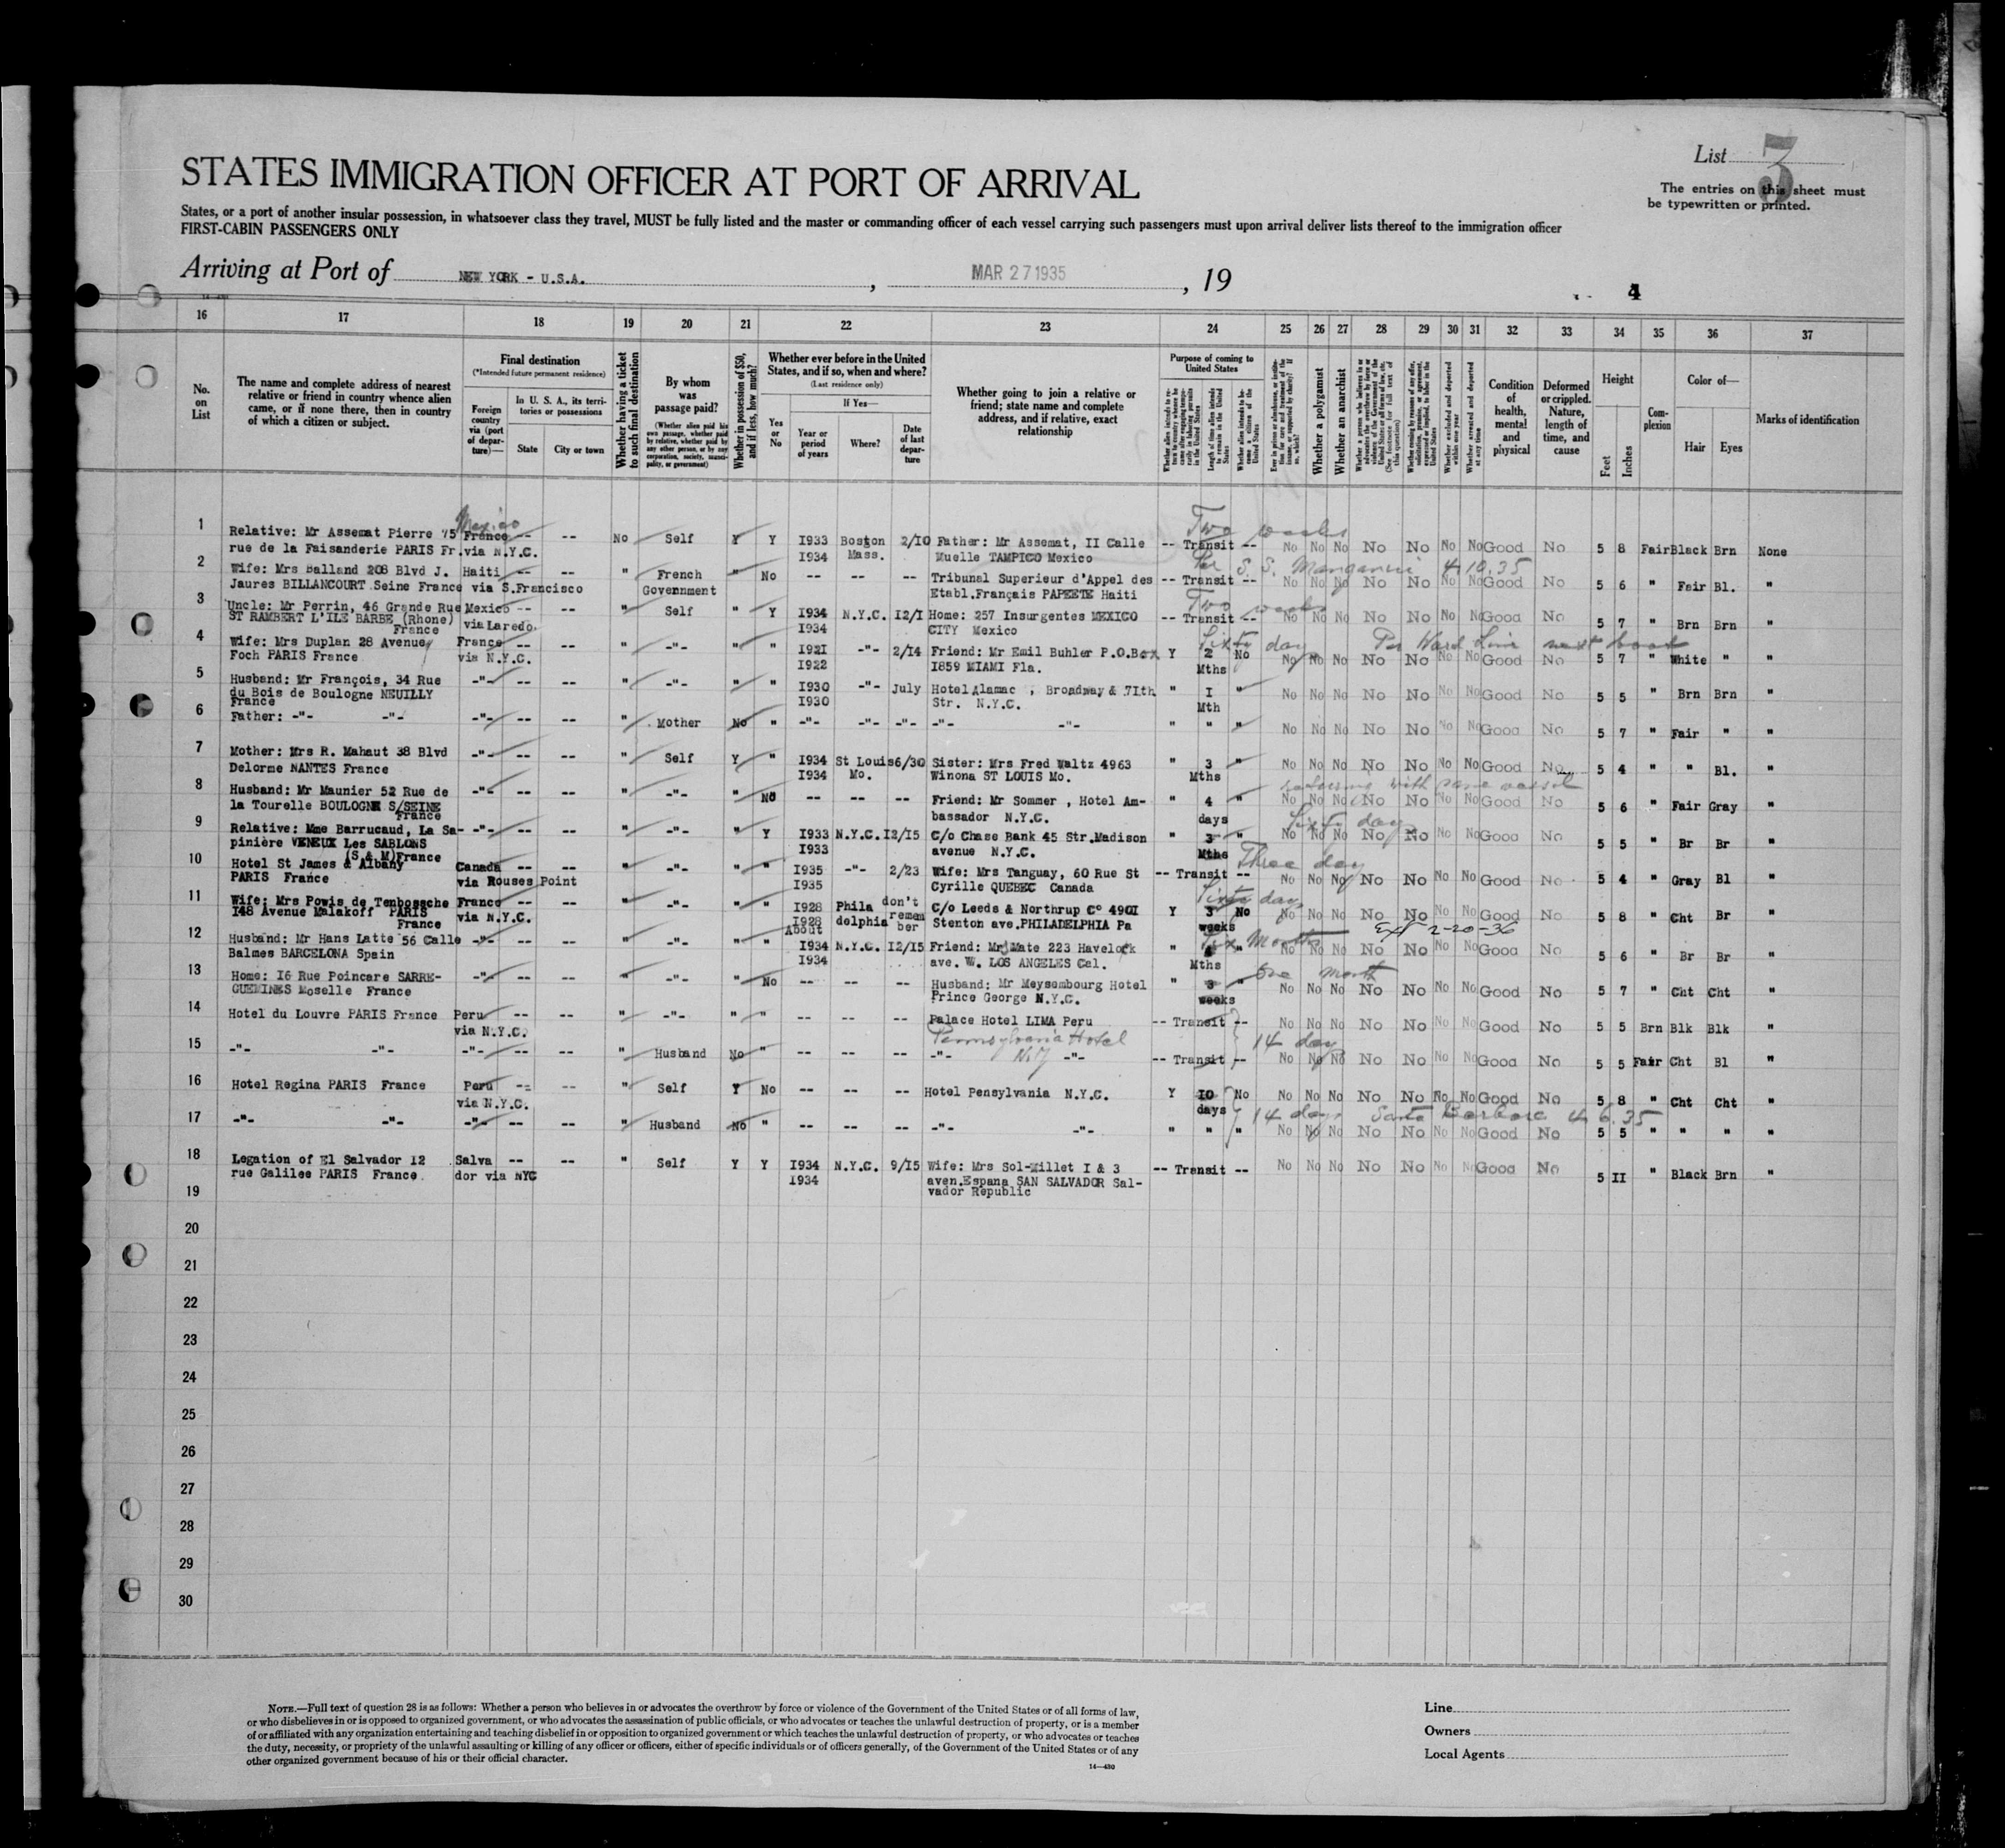 List 3
STATES IMMIGRATION OFFICER AT PORT OF ARRIVAL
The entries on this sheet must
be typewritten or printed.
States, or a port of another insular possession, in whatsoever class they travel, MUST be fully listed and the master or commanding officer of each vessel carrying such passengers must upon arrival deliver lists thereof to the immigration officer
FIRST-CABIN PASSENGERS ONLY
Arriving at Port of NEW YORK - U.S.A. , MAR 27 1935 , 19
4
16 17 18 19 20 21 22 23 24 25 26 27 28 29 30 31 32 33 34 35 36 37
No. on List
The name and complete address of nearest relative or friend in country whence alien came, or if none there, then in country of which a citizen or subject.
Final destination
(*Intended future permanent residence)
Foreign country via (port of departure)—
In U. S. A., its territories or possessions
State City or town
Whether having a ticket to such final destination
By whom was passage paid?
(Whether alien paid his own passage, whether paid by relative, whether paid by any other person, or by any corporation, society, municipality, or government)
Whether in possession of $50, and if less, how much?
Whether ever before in the United States, and if so, when and where?
(Last residence only)
Yes or No
If Yes—
Year or period of years Where? Date of last departure
Whether going to join a relative or friend; state name and complete address, and if relative, exact relationship
Purpose of coming to United States
Length of time alien intends to remain in the United States
Whether alien intends to become a citizen of the United States
Whether a polygamist
Whether an anarchist
Whether excluded and deported within one year
Whether arrested and deported at any time
Condition of health, mental and physical
Deformed or crippled. Nature, length of time, and cause
Height
Feet Inches
Complexion
Color of—
Hair Eyes
Marks of identification
Mexico Two weeks
1 Relative: Mr Assemat Pierre 75 France -- -- No Self Y Y I933 Boston 2/10 Father: Mr Assemat, II Calle -- Transit -- No No No No No No No Good No 5 8 Fair Black Brn None
rue de la Faisanderie PARIS Fr. via N.Y.C. I934 Mass. Muelle TAMPICO Mexico
Per S. S. 4.10.35
2 Wife: Mrs Balland 208 Blvd J. Haiti -- -- " French " No -- -- -- Tribunal Superieur d'Appel des -- Transit -- No No No No No No No Good No 5 6 " Fair Bl. "
Jaures BILLANCOURT Seine France via S.Francisco Government Etabl.Français PAPEETE Haiti
Two weeks
3 Uncle: Mr Perrin, 46 Grande Rue Mexico -- -- " Self " Y I934 N.Y.C. I2/I Home: 257 Insurgentes MEXICO -- Transit -- No No No No No No No Good No 5 7 " Brn Brn "
ST RAMBERT L'ILE BARBE (Rhone) via Laredo. I934 CITY Mexico
France
Sixty days Per Ward Line next boat
4 Wife: Mrs Duplan 28 Avenue France -- -- " -"- " " I921 -"- 2/14 Friend: Mr Emil Buhler P.O.Box Y 2 No No No No No No No No Good No 5 7 " White " "
Foch PARIS France via N.Y.C. I922 I859 MIAMI Fla. Mths
5 Husband: Mr François, 34 Rue -"- -- -- " -"- " " I930 -"- July Hotel Alamac , Broadway & 7Ith " I " No No No No No No No Good No 5 5 " Brn Brn "
du Bois de Boulogne NEUILLY I930 Str. N.Y.C. Mth
France
6 Father: -"- -"- -"- -- -- " Mother No " -"- -"- -"- -"- -"- " " " No No No No No No No Good No 5 7 " Fair " "
7 Mother: Mrs R. Mahaut 38 Blvd -"- -- -- " Self Y " I934 St Louis 6/30 Sister: Mrs Fred Waltz 4963 " 3 " No No No No No No No Good No 5 4 " " Bl. "
Delorme NANTES France I934 Mo. Winona ST LOUIS Mo. Mths
returning with same vessel
8 Husband: Mr Maunier 52 Rue de -"- -- -- " -"- " No -- -- -- Friend: Mr Sommer , Hotel Am- " 4 " No No No No No No No Good No 5 6 " Fair Gray "
la Tourelle BOULOGNE S/SEINE bassador N.Y.C. days
France
Sixty days
9 Relative: Mme Barrucaud, La Sa- -"- -- -- " -"- " Y I933 N.Y.C. I2/I5 C/o Chase Bank 45 Str.Madison " 3 " No No No No No No No Good No 5 5 " Br Br "
pinière VENEUX Les SABLONS I933 avenue N.Y.C. Mths
(S & M)France
Three days
10 Hotel St James & Albany Canada -- -- " -"- " " I935 -"- 2/23 Wife: Mrs Tanguay, 60 Rue St -- Transit -- No No No No No No No Good No 5 4 " Gray Bl "
PARIS France via Rouses Point I935 Cyrille QUEBEC Canada
Sixty days
11 Wife: Mrs Powis de Tenbossche France -- -- " -"- " " I928 Phila don't C/o Leeds & Northrup C° 490I Y 3 No No No No No No No No Good No 5 8 " Cht Br "
I48 Avenue Malakoff PARIS via N.Y.C. I928 delphia remem Stenton ave.PHILADELPHIA Pa weeks
France About ber
Six Months Ext 2-20-36
12 Husband: Mr Hans Latte 56 Calle -"- -- -- " -"- " " I934 N.Y.C. I2/I5 Friend: Mr Mate 223 Havelock " " No No No No No No No Good No 5 6 " Br Br "
Balmes BARCELONA Spain I934 ave. W. LOS ANGELES Cal. Mths
One month
13 Home: I6 Rue Poincare SARRE- -"- -- -- " -"- " No -- -- -- Husband: Mr Meysembourg Hotel " 3 " No No No No No No No Good No 5 7 " Cht Cht "
GUEMINES Moselle France Prince George N.Y.C. weeks
14 Hotel du Louvre PARIS France Peru -- -- " -"- " " -- -- -- Palace Hotel LIMA Peru -- Transit -- No No No No No No No Good No 5 5 Brn Blk Blk "
via N.Y.C. Pennsylvania Hotel 14 days
N.Y
15 -"- -"- -"- -- -- " Husband No " -- -- -- -"- -"- -- Transit -- No No No No No No No Good No 5 5 Fair Cht Bl "
16 Hotel Regina PARIS France Peru -- -- " Self Y No -- -- -- Hotel Pensylvania N.Y.C. Y IO No No No No No No No No Good No 5 8 " Cht Cht "
via N.Y.C. days 14 days Santa Barbara 4.6.35
17 -"- -"- -"- -- -- " Husband No " -- -- -- -"- -"- " " " No No No No No No No Good No 5 5 " " " "
18 Legation of El Salvador I2 Salva -- -- " Self Y Y I934 N.Y.C. 9/I5 Wife: Mrs Sol-Millet I & 3 -- Transit -- No No No No No No No Good No 5 II " Black Brn "
rue Galilee PARIS France. dor via NYC I934 aven.Espana SAN SALVADOR Sal-
vador Republic
19
20
21
22
23
24
25
26
27
28
29
30
NOTE.—Full text of question 28 is as follows: Whether a person who believes in or advocates the overthrow by force or violence of the Government of the United States or of all forms of law,
or who disbelieves in or is opposed to organized government, or who advocates the assassination of public officials, or who advocates or teaches the unlawful destruction of property, or is a member
of or affiliated with any organization entertaining and teaching disbelief in or opposition to organized government or which teaches the unlawful destruction of property, or who advocates or teaches
the duty, necessity, or propriety of the unlawful assaulting or killing of any officer or officers, either of specific individuals or of officers generally, of the Government of the United States or of any
other organized government because of his or their official character.
14—430
Line
Owners
Local Agents